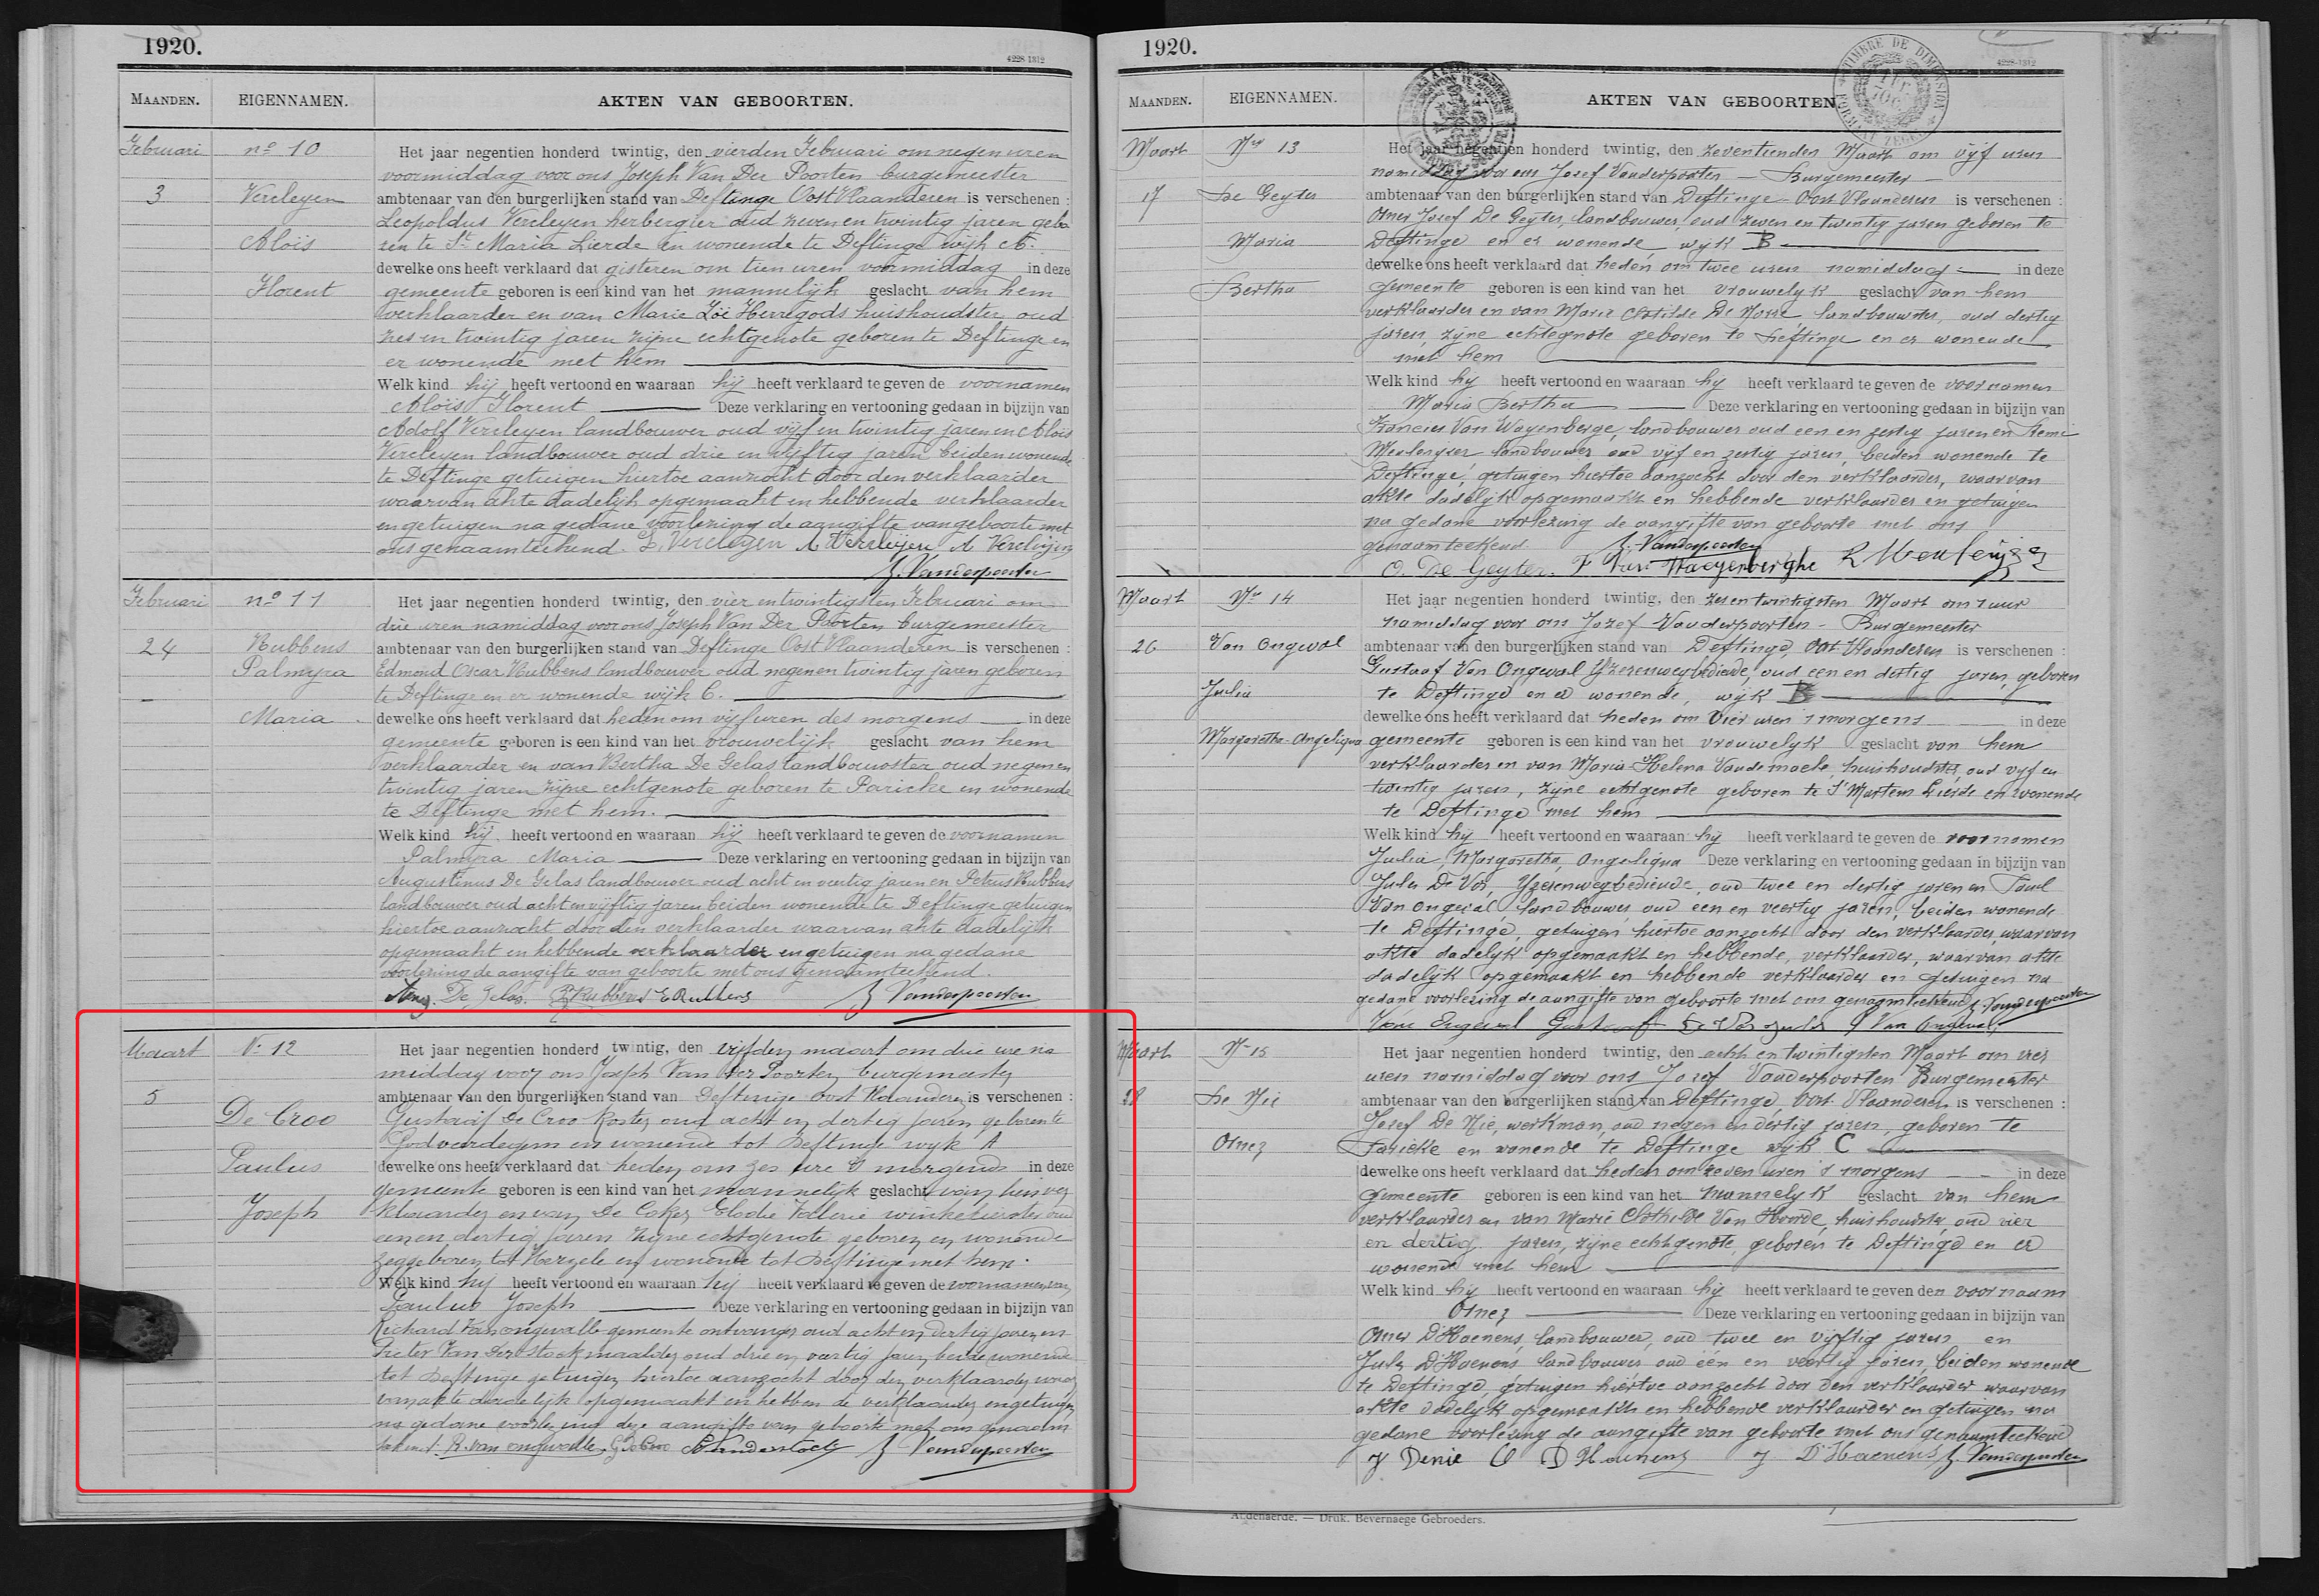 1920.
4228-1312
MAANDEN. EIGENNAMEN. AKTEN VAN GEBOORTEN.
Februari nº 10 Het jaar negentien honderd twintig, den vierden Februari om negen uren
voormiddag voor ons Joseph Van Der Poorten burgemeester
3 Vercleyen ambtenaar van den burgerlijken stand van Deftinge Oost Vlaanderen is verschenen :
Leopoldus Vercleyen herbergier oud zeven en twintig jaren gebo
Aloïs ren te St Maria Lierde en wonende te Deftinge wijk A.
dewelke ons heeft verklaard dat gisteren om tien uren voormiddag in deze
Florent gemeente geboren is een kind van het mannelijk geslacht van hem
verklaarder en van Marie Zoë Herregods huishoudster oud
zes en twintig jaren zijne echtgenote geboren te Deftinge en
er wonende met hem
Welk kind hij heeft vertoond en waaraan hij heeft verklaard te geven de voornamen
Aloïs Florent Deze verklaring en vertooning gedaan in bijzijn van
Adolf Vercleyen landbouwer oud vijf en twintig jaren en Aloïs
Vercleyen landbouwer oud drie en vijftig jaren beiden wonende
te Deftinge getuigen hiertoe aanzocht door den verklaarder
waarvan akte dadelijk opgemaakt en hebbende verklaarder
en getuigen na gedane voorlezing de aangifte van geboorte met
ons genaamteekend. L. Vercleyen A Vercleyen A Vercleyen
J. Vanderpoorten
Februari nº 11 Het jaar negentien honderd twintig, den vier en twintigsten Februari om
drie uren namiddag voor ons Joseph Van Der Poorten burgemeester
24 Rubbens ambtenaar van den burgerlijken stand van Deftinge Oost Vlaanderen is verschenen :
Palmyra Edmond Oscar Rubbens landbouwer oud negen en twintig jaren geboren
te Deftinge en er wonende wijk C.
Maria dewelke ons heeft verklaard dat heden om vijf uren des morgens in deze
gemeente geboren is een kind van het vrouwelijk geslacht van hem
verklaarder en van Bertha De Gelas landbouwster oud negen en
twintig jaren zijne echtgenote geboren te Paricke en wonende
te Deftinge met hem.
Welk kind hij heeft vertoond en waaraan hij heeft verklaard te geven de voornamen
Palmyra Maria Deze verklaring en vertooning gedaan in bijzijn van
Augustinus De Gelas landbouwer oud acht en veertig jaren en Petrus Rubbens
landbouwer oud acht en vijftig jaren beiden wonende te Deftinge getuigen
hiertoe aanzocht door den verklaarder waarvan akte dadelijk
opgemaakt en hebbende verklaarder en getuigen na gedane
voorlezing de aangifte van geboorte met ons genaamteekend.
Aug. De Gelas. P Rubbens E Rubbens J Vanderpoorten
Maart N. 12 Het jaar negentien honderd twintig, den vijfden maart om drie ure na
middag voor ons Joseph Van der Poorten burgemeester
5 ambtenaar van den burgerlijken stand van Deftinge Oost Vlaanderen is verschenen :
De Croo Gustaaf De Croo koster oud acht en dertig jaren geboren te
Godveerdegem en wonende tot Deftinge wijk A
Paulus dewelke ons heeft verklaard dat heden om zes ure 's morgends in deze
gemeente geboren is een kind van het mannelijk geslacht van hem ver
Joseph klaarder en van De Coker Elodie Vallerie winkelierster oud
een en dertig jaren zijne echtgenote geboren en wonende
zegge geboren tot Herzele en wonende tot Deftinge met hem.
Welk kind hij heeft vertoond en waaraan hij heeft verklaard te geven de voornamen van
Paulus Joseph Deze verklaring en vertooning gedaan in bijzijn van
Richard Van ongevalle gemeente ontvanger oud acht en dertig jaren en
Pieter Van der Stock maalder oud drie en veertig jaren beide wonende
tot Deftinge getuigen hiertoe aanzocht door den verklaarder waar
van akte dadelijk opgemaakt en hebben de verklaarder en getuigen
na gedane voorlezing deze aangifte van geboorte met ons genaam
teekend. R. van ongevalle G De Croo P Vanderstock J Vanderpoorten
1920.
TIMBRE DE DIMENSION
4228-1312
MAANDEN. EIGENNAMEN. AKTEN VAN GEBOORTEN.
Maart Nr 13 Het jaar negentien honderd twintig, den zeventienden Maart om vijf uren
namiddag voor ons Jozef Vanderpoorten - Burgemeester
17 De Geyter ambtenaar van den burgerlijken stand van Deftinge - Oost Vlaanderen is verschenen :
Omer Jozef De Geyter, landbouwer, oud zeven en twintig jaren geboren te
Maria Deftinge en er wonende wijk B
dewelke ons heeft verklaard dat heden om twee uren namiddag in deze
Bertha gemeente geboren is een kind van het vrouwelyk geslacht van hem
verklaarder en van Marie Clotilde De Norré landbouwster, oud dertig
jaren, zijne echtegnote geboren te Deftinge en er wonende
met hem
Welk kind hy heeft vertoond en waaraan hy heeft verklaard te geven de voornamen
Maria Bertha Deze verklaring en vertooning gedaan in bijzijn van
Francies Van Wayenberge, landbouwer oud een en zestig jaren en Remi
Meulenyzer landbouwer oud vijf en zestig jaren, beiden wonende te
Deftinge, getuigen hiertoe aanzocht door den verklaarder, waarvan
akte dadelyk opgemaakt en hebbende verklaarder en getuigen
na gedane voorlezing de aangifte van geboorte met ons
genaamteekend. J. Vanderpoorten
O. De Geyter. F Van Waeyenberghe R Meuleyzer
Maart Nr 14 Het jaar negentien honderd twintig, den zesentwintigsten Maart om 1 uur
namiddag voor ons Jozef Vanderpoorten - Burgemeester
26 Van Ongeval ambtenaar van den burgerlijken stand van Deftinge, Oost Vlaanderen is verschenen :
Gustaaf Van Ongeval Yzerenwegbediende, oud een en dertig jaren, geboren
Julia te Deftinge en er wonende, wijk B
dewelke ons heeft verklaard dat heden om vier uren 's morgens in deze
Margaretha-Angeliqua gemeente geboren is een kind van het vrouwelyk geslacht van hem
verklaarder en van Maria Helena Vandemaele, huishoudster, oud vyf en
twintig jaren, zijne echtgenote geboren te St Martens Lierde en wonende
te Deftinge met hem
Welk kind hy heeft vertoond en waaraan hy heeft verklaard te geven de voornamen
Julia, Margaretha, Angeliqua Deze verklaring en vertooning gedaan in bijzijn van
Jules De Vos, Yzerenwegbediende, oud twee en dertig jaren en Paul
Van Ongeval landbouwer oud een en veertig jaren, beiden wonende
te Deftinge, getuigen hiertoe aanzocht door den verklaarder, waarvan
akte dadelyk opgemaakt en hebbende, verklaarder, waarvan akte
dadelyk opgemaakt en hebbende verklaarder en getuigen na
gedane voorlezing de aangifte van geboorte met ons genaamteekend J. Vanderpoorten
Van Ongeval Gustaaf De Vos Jules P Van Ongeval
Maart Nr 15 Het jaar negentien honderd twintig, den acht en twintigsten Maart om vier
uren namiddag voor ons Jozef Vanderpoorten Burgemeester
28 De Nie ambtenaar van den burgerlijken stand van Deftinge, Oost Vlaanderen is verschenen :
Jozef De Nie, werkman, oud negen en dertig jaren, geboren te
Omer Paricke en wonende te Deftinge wijk C
dewelke ons heeft verklaard dat heden om zeven uren 's morgens in deze
gemeente geboren is een kind van het mannelyk geslacht van hem
verklaarder en van Marie Clothilde Van Hoorde, huishoudster, oud vier
en dertig jaren, zijne echtgenote, geboren te Deftinge en er
wonende met hem
Welk kind hy heeft vertoond en waaraan hy heeft verklaard te geven den voornaam
Omer Deze verklaring en vertooning gedaan in bijzijn van
Omer D'Haenens, landbouwer, oud twee en vijftig jaren en
Jules D'Haenens landbouwer oud één en veertig jaren, beiden wonende
te Deftinge, getuigen hiertoe aanzocht door den verklaarder waarvan
akte dadelyk opgemaakt en hebbende verklaarder en getuigen na
gedane voorlezing de aangifte van geboorte met ons genaamteekend
J Denie O D'Haenens J D'Haenens J. Vanderpoorten
Audenaerde. — Druk. Bevernaege Gebroeders.